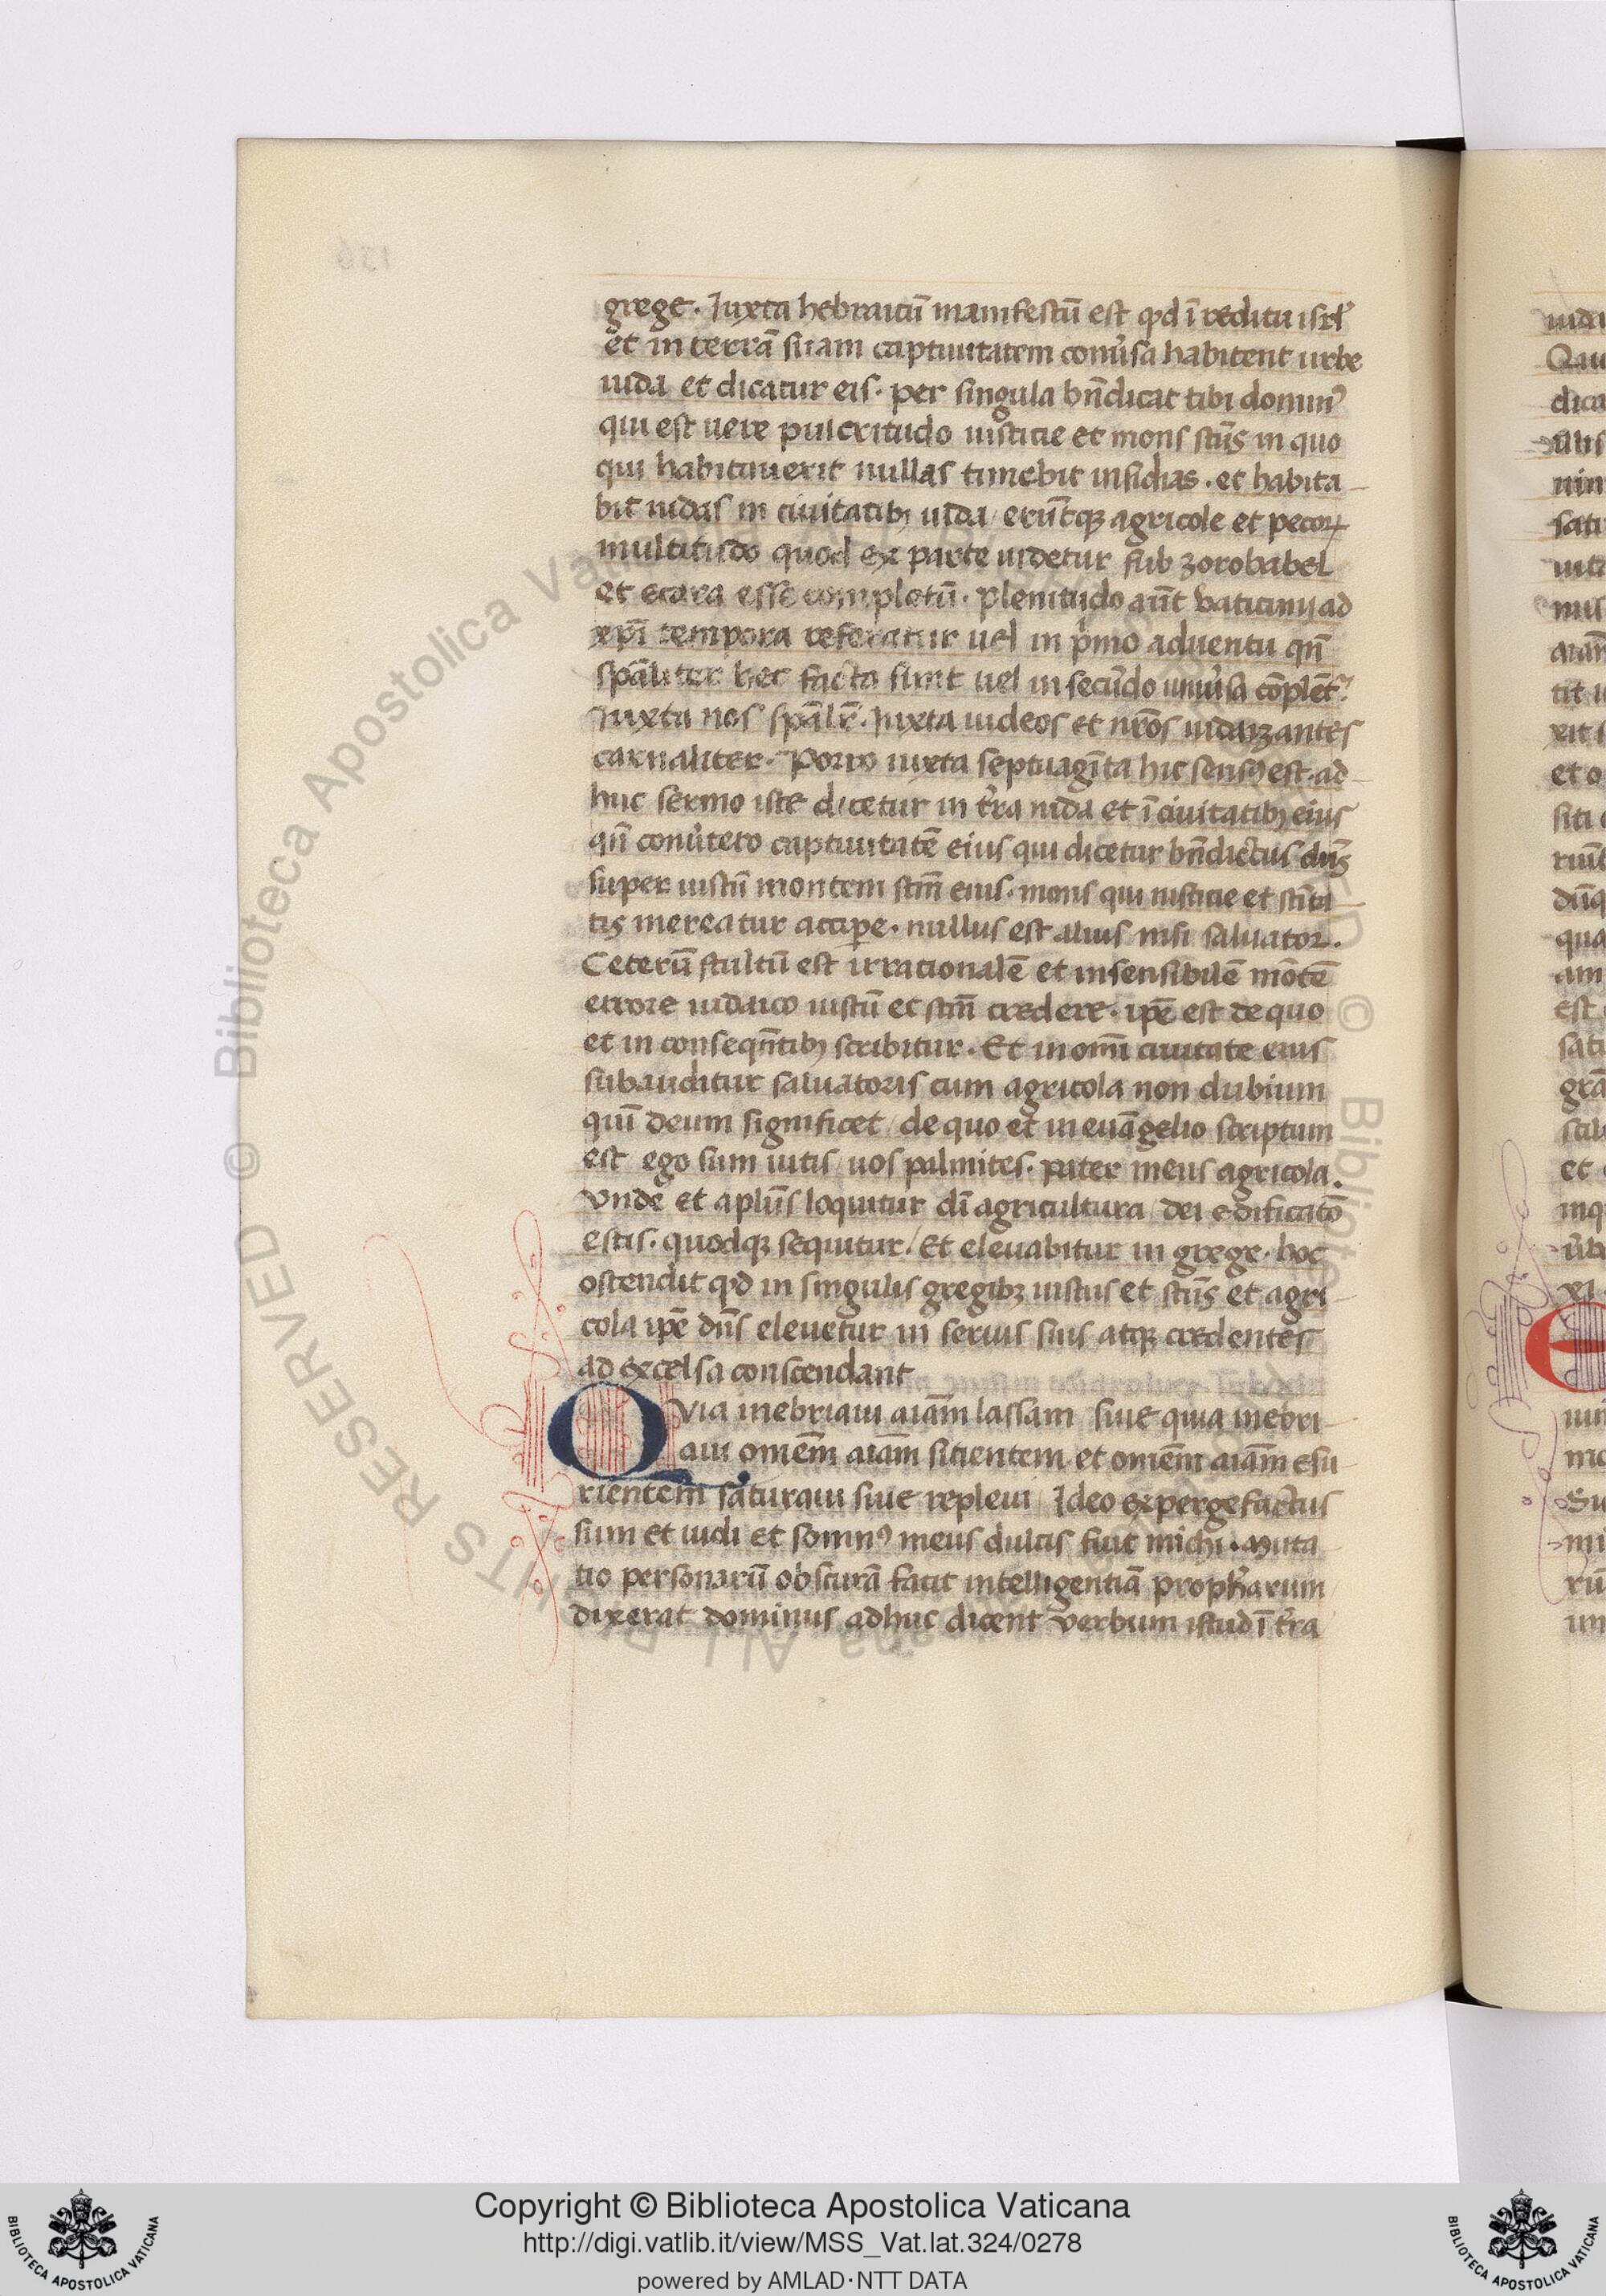 grege. Juxta hebraicū manifestū est qd ī reditu isrl'
et in terrā suam captiuitatem conu'sa habitent urbe
iuda et dicatur eis. per singula bn̄dicat tibi domin9
qui est uere pulcritudo iusticie et mons scūs in quo
qui habitauerit nullas timebit insidias. et habita
bit iudas in ciuitatib; iuda / erūtq; agricole et pecoꝝ
multitudo quod ex parte uidetur sub zorobabel
et ezara esse completū. plenitudo aūt vaticinij ad
xp̄i tempora referatur uel in p'mo aduentu qn̄
sp̄aliter hec facta sunt uel in secūdo uniu'sa cōplēt'
Juxta nos sp̄alr̄. Juxta iudeos et nr̄os iudaizantes
carnaliter. Porro iuxta septuagīta hic sens9 est. ad
huc sermo iste dicetur in t'ra iuda et ī ciuitatib; eius
qn̄ conu'tero captiuitatē eius qui dicetur bn̄dictus dn̄s
super iustū montem scm̄ eius. mons qui iusticie et sc̄ita
tis mereatur accipe. nullus est alius nisi saluator.
Ceterū stultū est irracionalē et insensibilē mōtē
errore iudaico iustū et scm̄ credere. ipē est de quo
et in conseqn̄tib; scribitur. Et in omī ciuitate eius
subauditur saluatoris cum agricola non dubium
quī deum significet / de quo et in euāgelio scriptum
est ego sum uitis / uos palmites. pater meus agricola.
vnde et aplūs loquitur dī agricultura / dei edificatō
estis. quodq; sequitur / Et eleuabitur in grege. hoc
ostendit qd in singulis gregib; iustus et scūs et agri
cola ipē dn̄s eleuetur in seruis suis atq; credentes
ad excelsa conscendant
Qvia inebriaui aīam lassam siue quia inebri
aui omēm aīam sitientem et omēm aīam esu
rientem saturaui siue repleui Ideo expergefactus
sum et uidi et somn9 meus dulcis fuit michi. Muta
tio personarū obscurā facit intelligentiā proph'arum
dixerat dominus adhuc dicent verbum istud ī t'ra
Copyright © Biblioteca Apostolica Vaticana
http://digi.vatlib.it/view/MSS_Vat.lat.324/0278
powered by AMLAD·NTT DATA